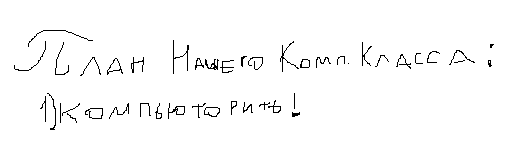 Пълан Нашего Комп. Класса:
1) компьюторить!